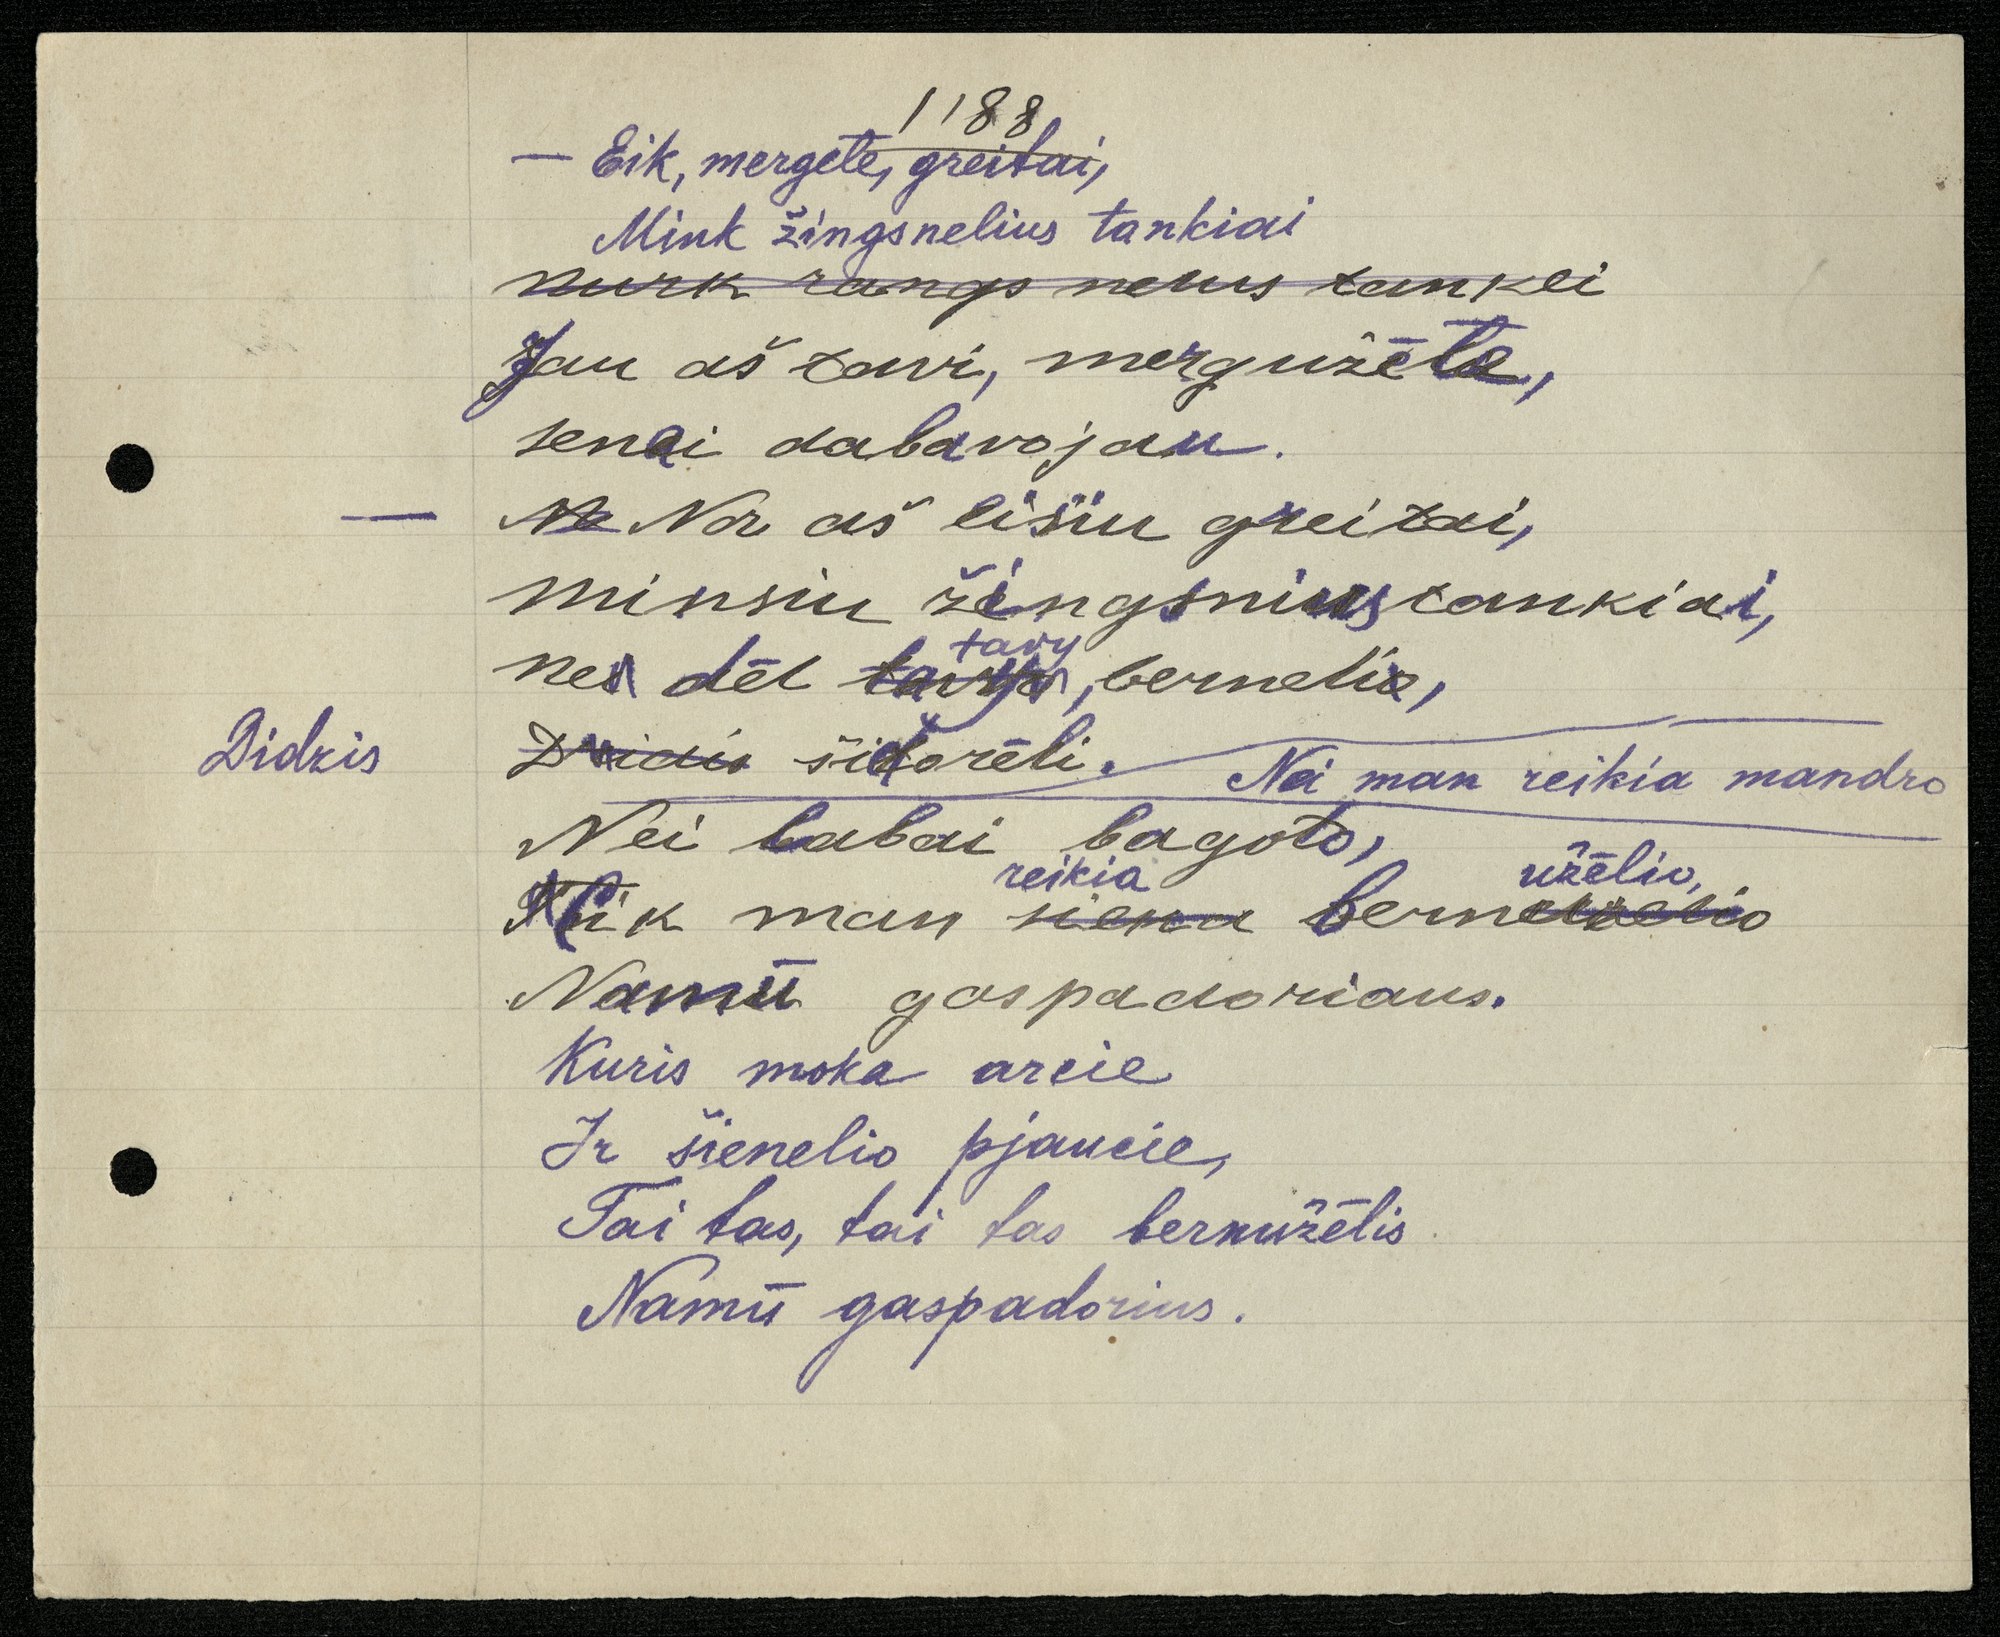 1188
— Eik, mergele, greitai,
Mink žingsnelius tankiai
Jau aš tavi, mergužėle,
senei dabavojau.
— Nor aš eisiu greitai,
minsiu žingsnius tankiai,
nei dėl tavy, bernelie,
Didzis šidorėli.
Nei man reikia mandro
Nei labai bagoto,
Tik man reikia bernužėlio,
Namū gaspadoriaus.
Kuris moka arcie
Ir šienelio pjaucie,
Tai tas, tai tas bernužėlis
Namū gaspadorius.